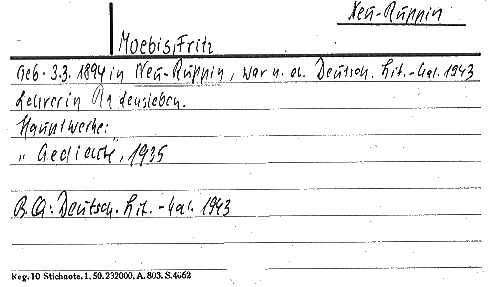 Neu-Ruppin
Moebis, Fritz
Geb. 3.3. 1894 in Neu-Ruppin, war n. d. Deutsch. Lit.-Kal. 1943
Lehrer in Radensleben.
Hauptwerke:
„Gedichte", 1935
B. Q.: Deutsch. Lit.-Kal. 1943
Reg. 10 Stichnote. 1. 50. 232000. A. 803. S. 4662